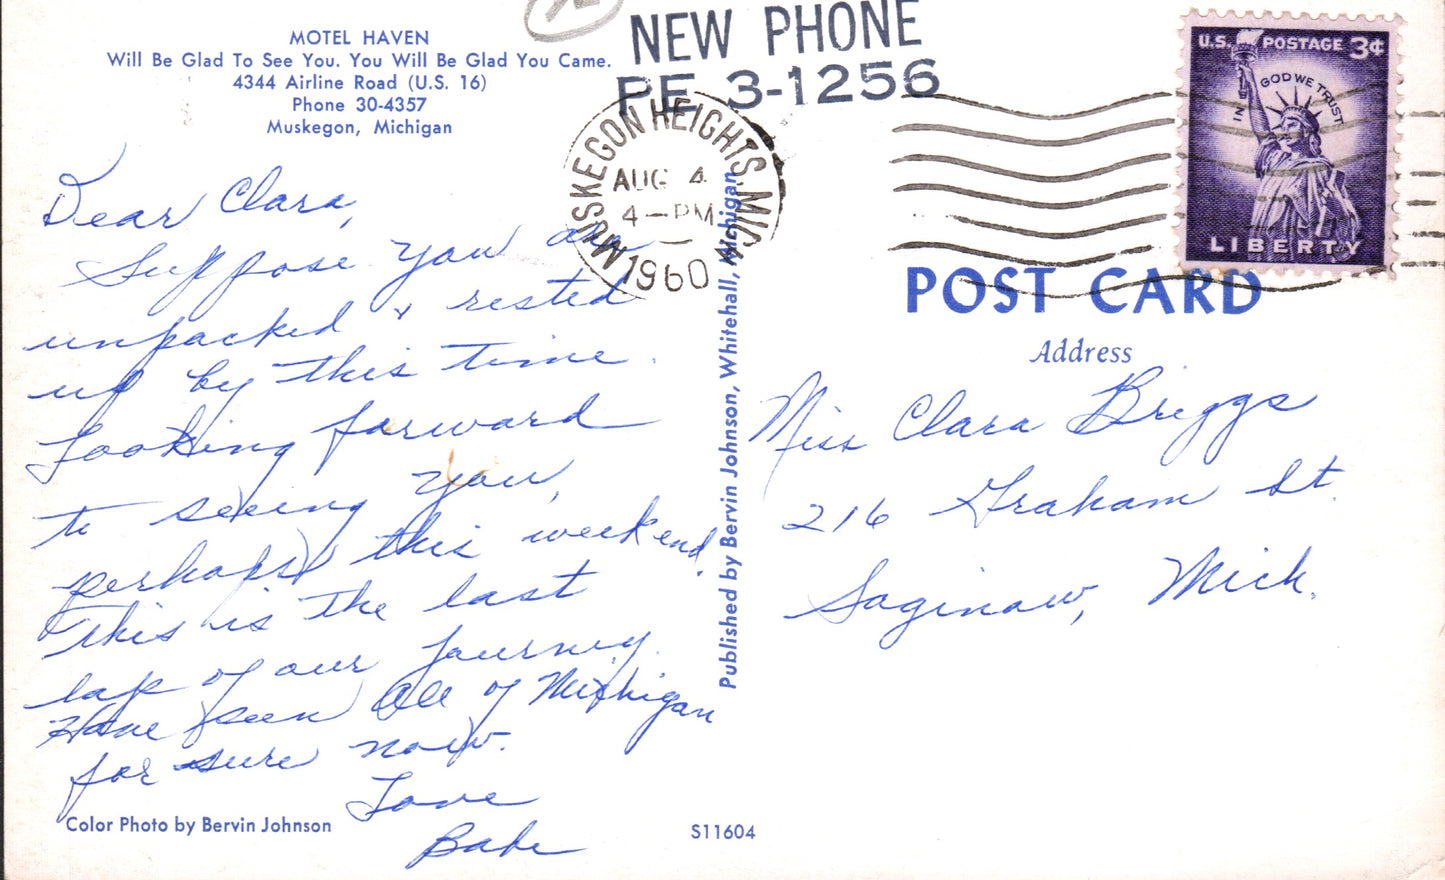 MOTEL HAVEN
Will Be Glad To See You. You Will Be Glad You Came.
4344 Airline Road (U.S. 16)
Phone 30-4357
Muskegon, Michigan
NEW PHONE
PE 3-1256
MUSKEGON HEIGHTS, MICH
AUG 4
4-PM
1960
U.S. POSTAGE 3¢
IN GOD WE TRUST
LIBERTY
Dear Clara,
Suppose you are
unpacked & rested
up by this time.
Looking forward
to seeing you,
perhaps this weekend.
This is the last
lap of our journey.
Have seen all of Michigan
for sure now.
Love
Babe
Color Photo by Bervin Johnson
S11604
Published by Bervin Johnson, Whitehall, Michigan
POST CARD
Address
Miss Clara Briggs
216 Graham St.
Saginaw, Mich.